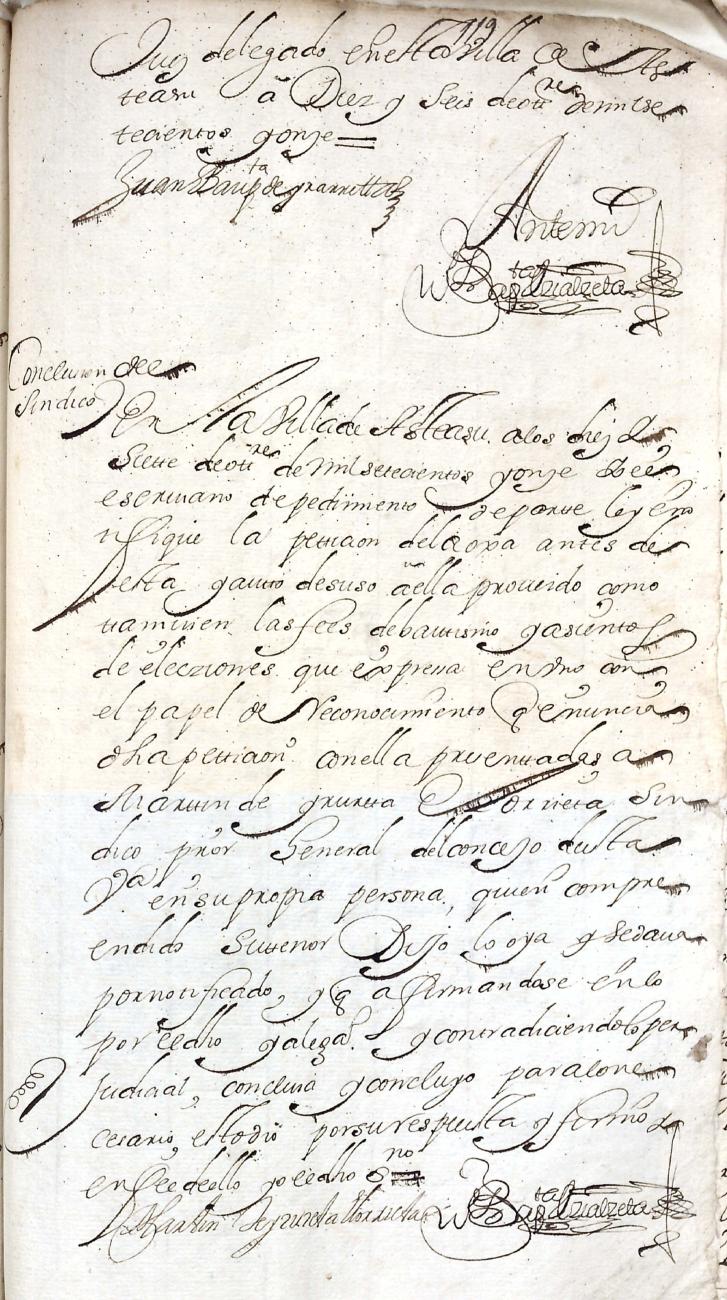 119
Juez delegado en esta Villa de As
teasu a Diez y seis de ott.re de mil se
tecientos y onze =
Juan Baup.ta de yrarreta
Antemi
Bap.ta de Zialzeta
Conclusion del
sindico
En la Villa de Asteasu, a los diez y
siete de ott.re de mil setecientos y onze Yo el
escrivano de pedimiento de parte ley e no
tifique la peticion de la oxa antes de
esta y auto de suso a ella proveido como
tamvien las fees de bautismo y asientos
de elecziones que expresa en vno con
el papel de Reconocimiento y Renuncia
dha peticion con ella presentadas a
Martin de yrureta Yorrieta sin
dico pror General del concejo de esta
V.a en su propia persona, quien compre
endido su tenor Dijo lo oya y se dava
por notificado, y q afirmandose en lo
por el dho y alegado y contradiciendo lo per
judicial, concluia y concluyo para lo ne
cesario, esto dio por su respuesta y firmo y
en fee de ello yo el dho s.no =
Martin de yrureta Yorrieta
Bap.ta de Zialzeta